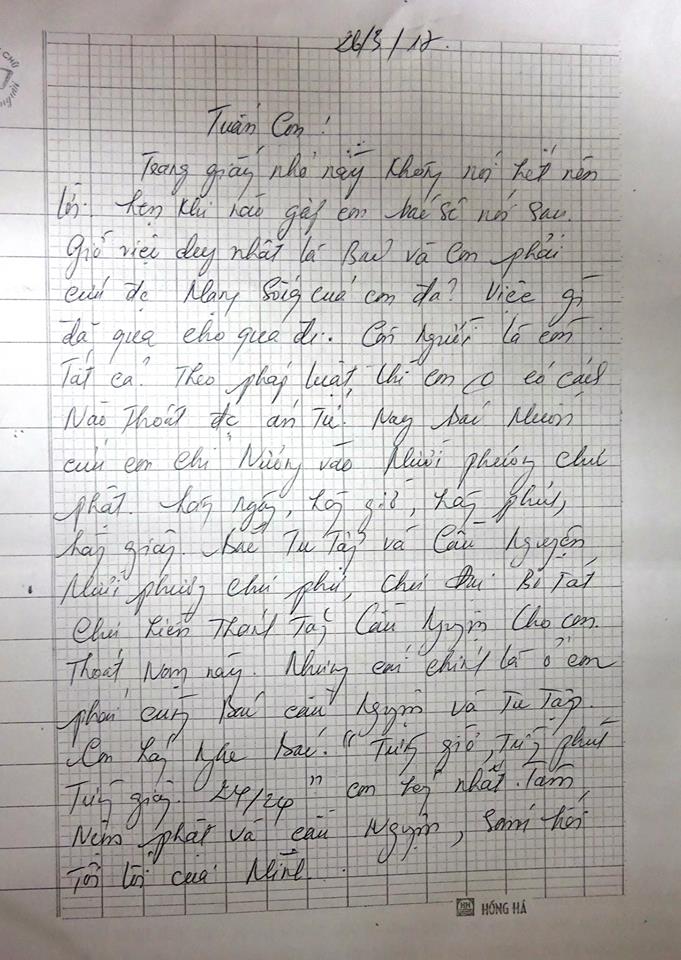 26/3/17.
Tuấn Con!
Trang giấy nhỏ này không nói hết nên
lời. hẹn khi nào gặp con bác sẽ nói sau.
Giờ việc duy nhất là Bác và Con phải
cứu đc Mạng Sống của con đã? Việc gì
đã qua cho qua đi. Con Người là còn
Tất cả? Theo pháp luật, thì con có cách
Nào Thoát đc án Tử. Nay bác Muốn
cứu con chỉ Nương vào Mười phương chư
phật. hàng ngày, hàng giờ, hàng phút,
hàng giây. Bác Tu Tập và Cầu Nguyện
Mười phương chư phật, chư Bồ Tát
Chư hiền Thánh Tăng Cầu Nguyện Cho con.
Thoát Nạn này. Nhưng cái chính là ở con
phải cùng Bác cầu Nguyện và Tu Tập.
Con hãy Nghe Bác. "Từng giờ, Từng phút
Từng giây. 24/24" con hãy nhất Tâm
Niệm phật và cầu Nguyện, Sám hối
Tội lỗi của Mình.
HỒNG HÀ